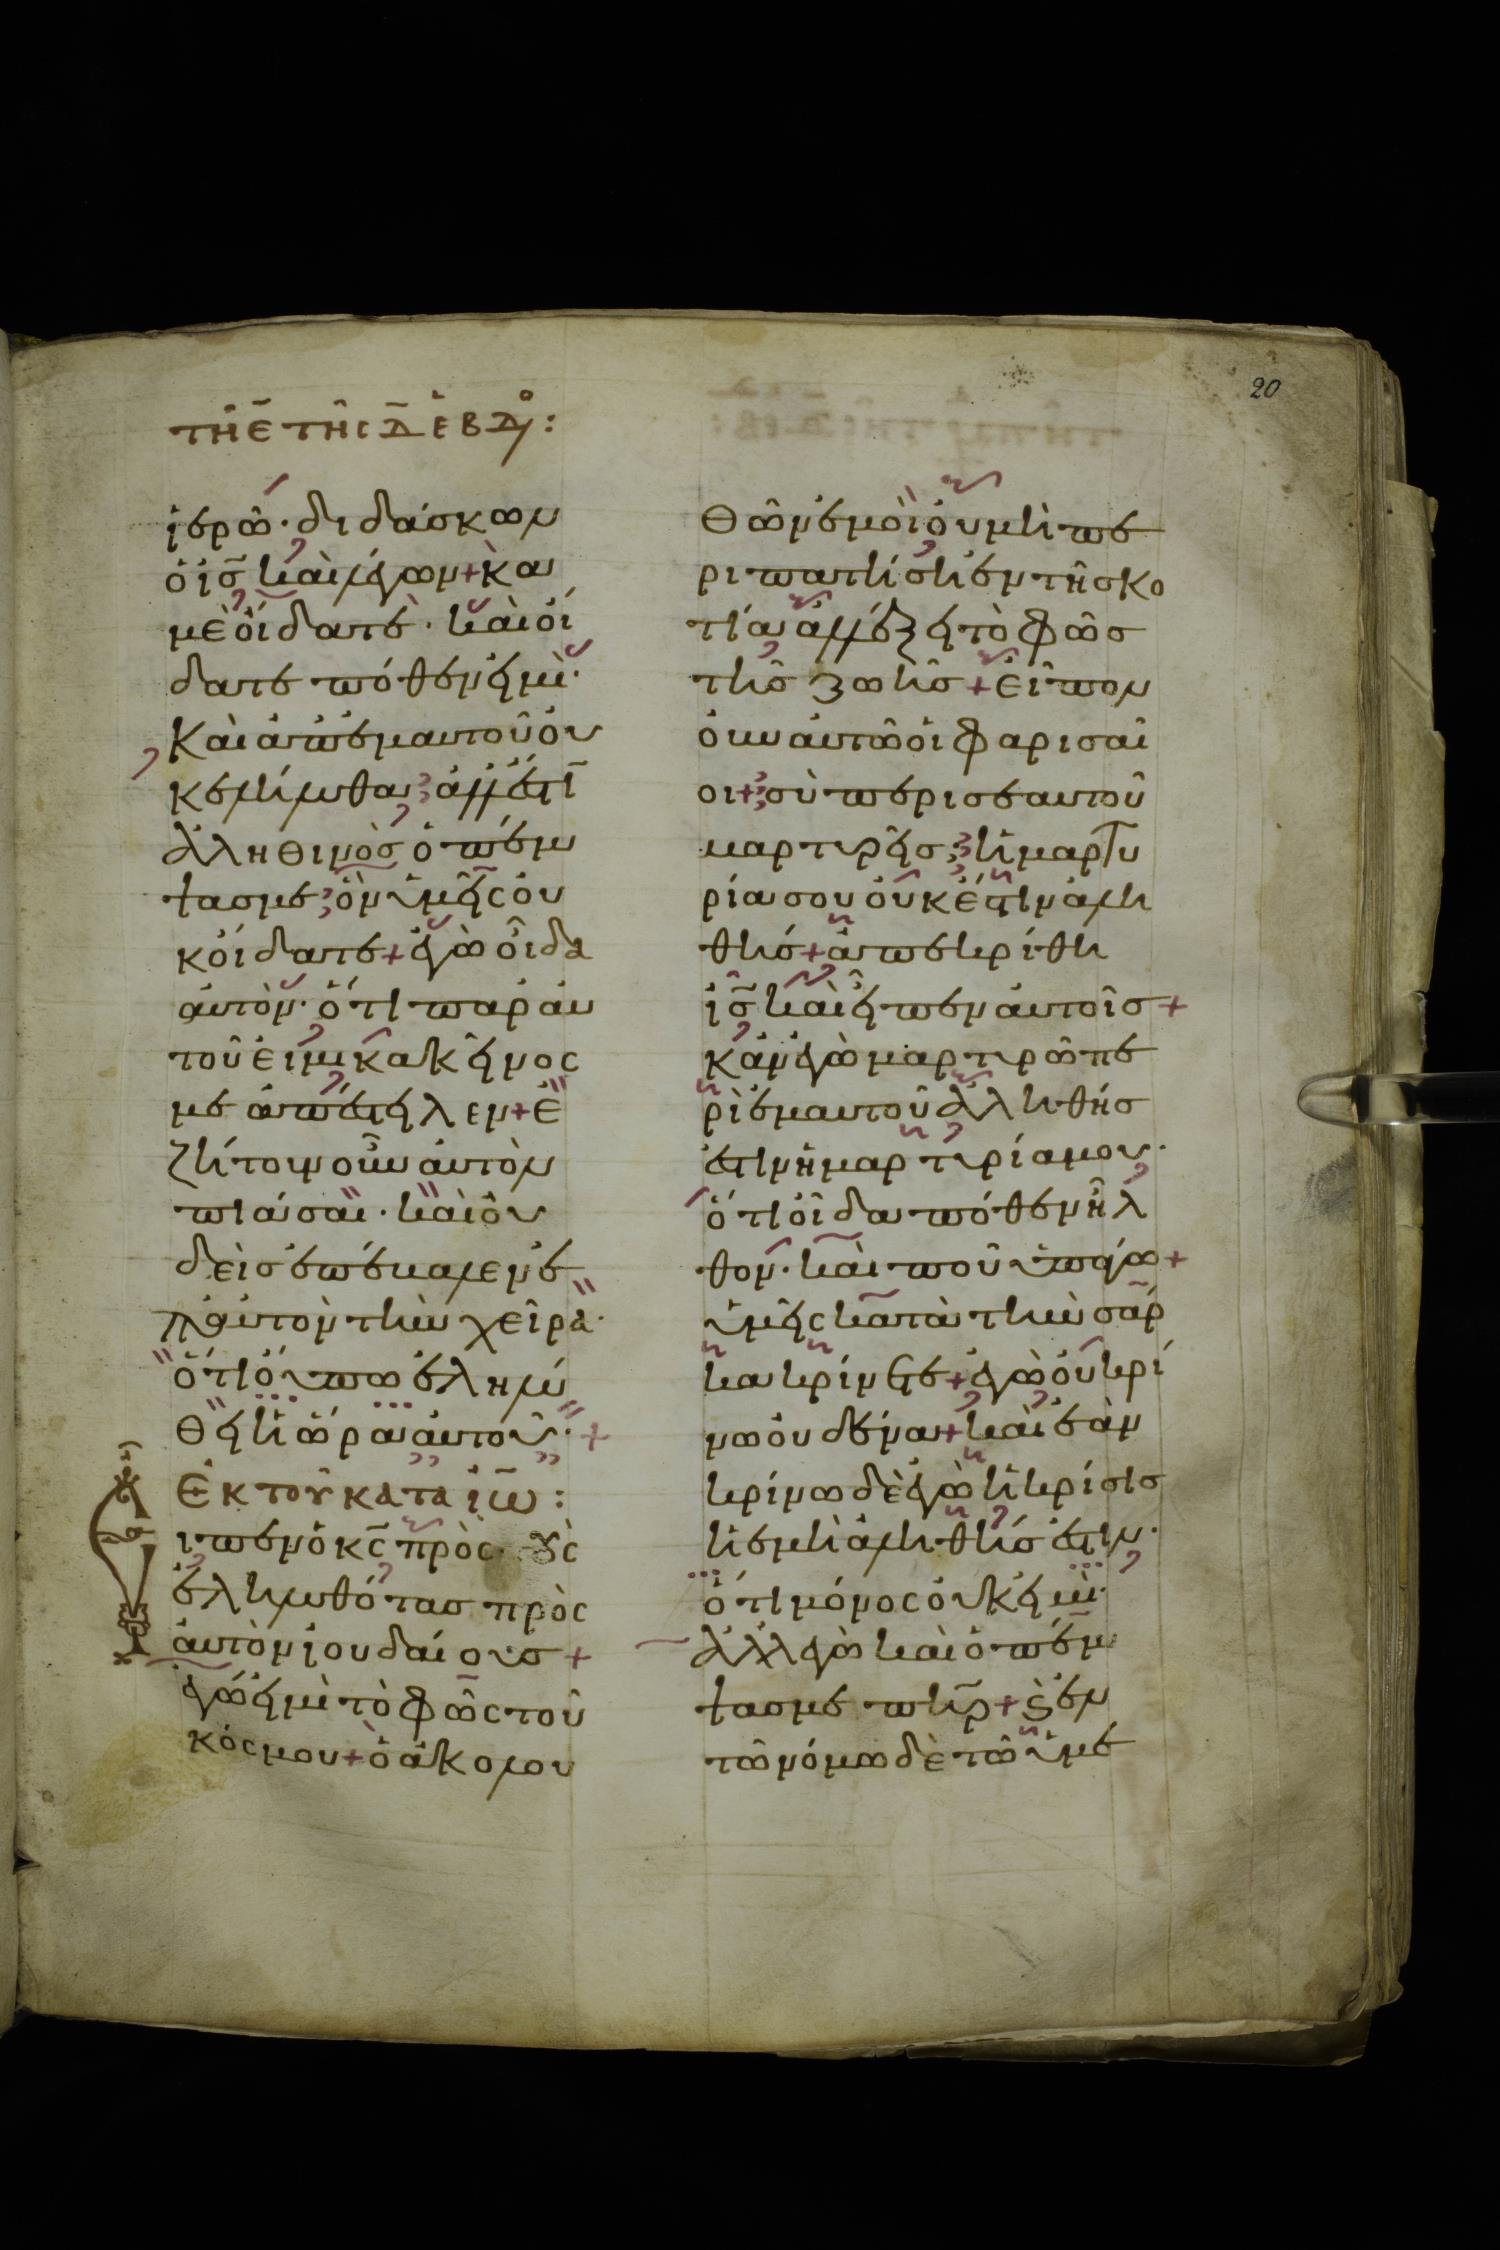 20
τῆ ε̄ τῆς δ̄ ἑβδο:
ἱερῶ· διδάσκων
ὁ ἰς̄ καὶ λέγων + κα
μὲ οἴδατε· καὶ οἴ
δατε πόθεν εἰμὶ·
καὶ ἀπ' ἐμαυτοῦ οὐ
κ ἐλήλυθα, ἀλλ' ἔστῑ
ἀληθινὸς ὁ πέμ
ψας με, ὃν ὑμεῖς οὐ
κ οἴδατε + ἐγὼ οἶδα
αὐτὸν· ὅτι παρ' αὐ
τοῦ εἰμι κακεῖνος
με ἀπέστειλεν + ἐ
ζήτουν οὖν αὐτὸν
πιάσαι· καὶ οὐ
δεὶς ἐπέβαλεν ἐ
π' αὐτὸν τὴν χεῖρα·
ὅτι οὔπω ἐλήλύ
θει ἡ ὥρα αὐτοῦ· +
Ἐκ τοῦ κατα ἰω̄:
ιπεν ὁ κς̄ πρὸς τοὺς
ἐληλυθότας πρὸς
αὐτὸν ἰουδαίους +
ἐγώ εἰμὶ τὸ φῶς τοῦ
κόσμου + ὁ ἀκολου
θῶν ἐμοὶ οὐ μὴ πε
ριπατήσῃ ἐν τῆ σκο
τία ἀλλ' ἕξει τὸ φῶς
τῆς ζωῆς + εἶπον
οὖν αὐτῶ οἱ φαρισαῖ
οι + σὺ περι σεαυτοῦ
μαρτυρεῖς, ἡ μαρτυ
ρία σου οὐκ ἔστιν ἀλη
θής + ἀπεκρίθη
ἰς̄ καὶ εἶπεν αὐτοῖς +
κἀν ἐγὼ μαρτυρῶ πε
ρὶ ἐμαυτοῦ ἀληθής
ἐστιν ἡ μαρτυρία μου·
ὅτι οἶδα πόθεν ἦλ
θον· καὶ ποῦ ὑπάγω +
ὑμεῖς κατὰ τὴν σάρ
κα κρίνετε + ἐγὼ οὐ κρί
νω οὐδένα + καὶ ἐὰν
κρίνω δὲ ἐγὼ ἡ κρίσις
ἡ ἐμὴ ἀληθής ἐστιν·
ὅτι μόνος οὐκ εἰμὶ·
ἀλλ' ἐγὼ καὶ ὁ πέμ
ψας με πη̄ρ + κ(αὶ) ἐν
τῶ νόμω δὲ τῶ ὑμε